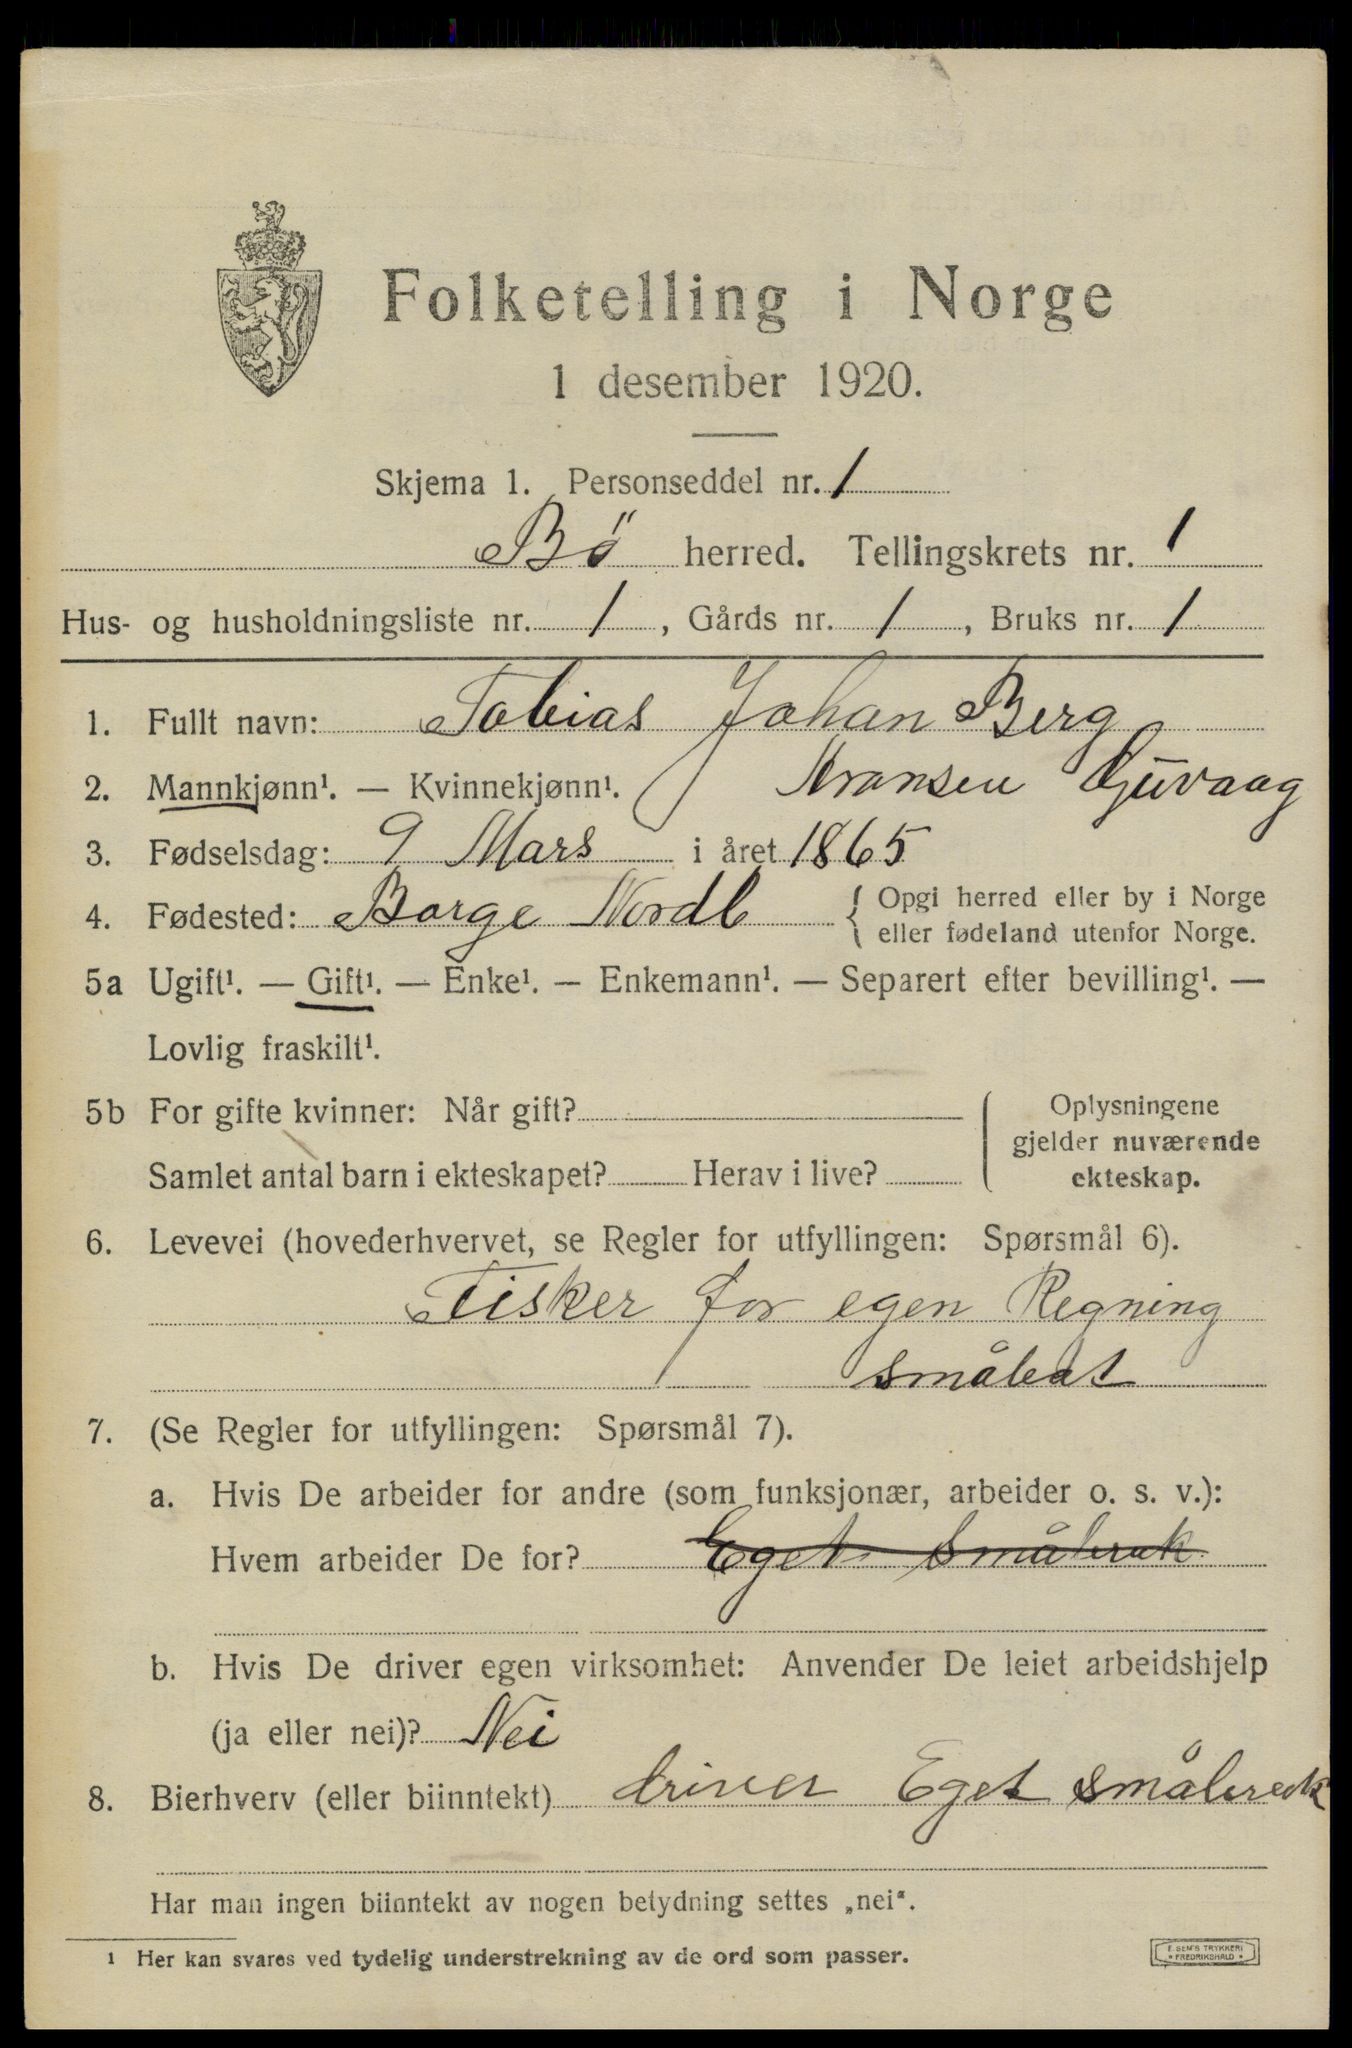 Folketelling i Norge
1 desember 1920.
Skjema 1. Personseddel nr. 1
Bö herred. Tellingskrets nr. 1
Hus- og husholdningsliste nr. 1, Gårds nr. 1, Bruks nr. 1
1. Fullt navn: Tobias Johan Berg
2. Mannkjønn¹. — Kvinnekjønn¹. Guvaag
3. Fødselsdag: 9 Mars i året 1865
4. Fødested: Borge Nordl { Opgi herred eller by i Norge
eller fødeland utenfor Norge.
5a Ugift¹. — Gift¹. — Enke¹. — Enkemann¹. — Separert efter bevilling¹. —
Lovlig fraskilt¹.
5b For gifte kvinner: Når gift?
Samlet antal barn i ekteskapet? Herav i live?
Oplysningene
gjelder nuværende
ekteskap.
6. Levevei (hovederhvervet, se Regler for utfyllingen: Spørsmål 6).
Fisker for egen Regning
småbåt
7. (Se Regler for utfyllingen: Spørsmål 7).
a. Hvis De arbeider for andre (som funksjonær, arbeider o. s. v.):
Hvem arbeider De for? Eget Småbruk
b. Hvis De driver egen virksomhet: Anvender De leiet arbeidshjelp
(ja eller nei)? Nei
8. Bierhverv (eller biinntekt) driver Eget småbruk
Har man ingen biinntekt av nogen betydning settes „nei“.
¹ Her kan svares ved tydelig understrekning av de ord som passer.
E. SEM'S TRYKKERI
FREDRIKSHALD